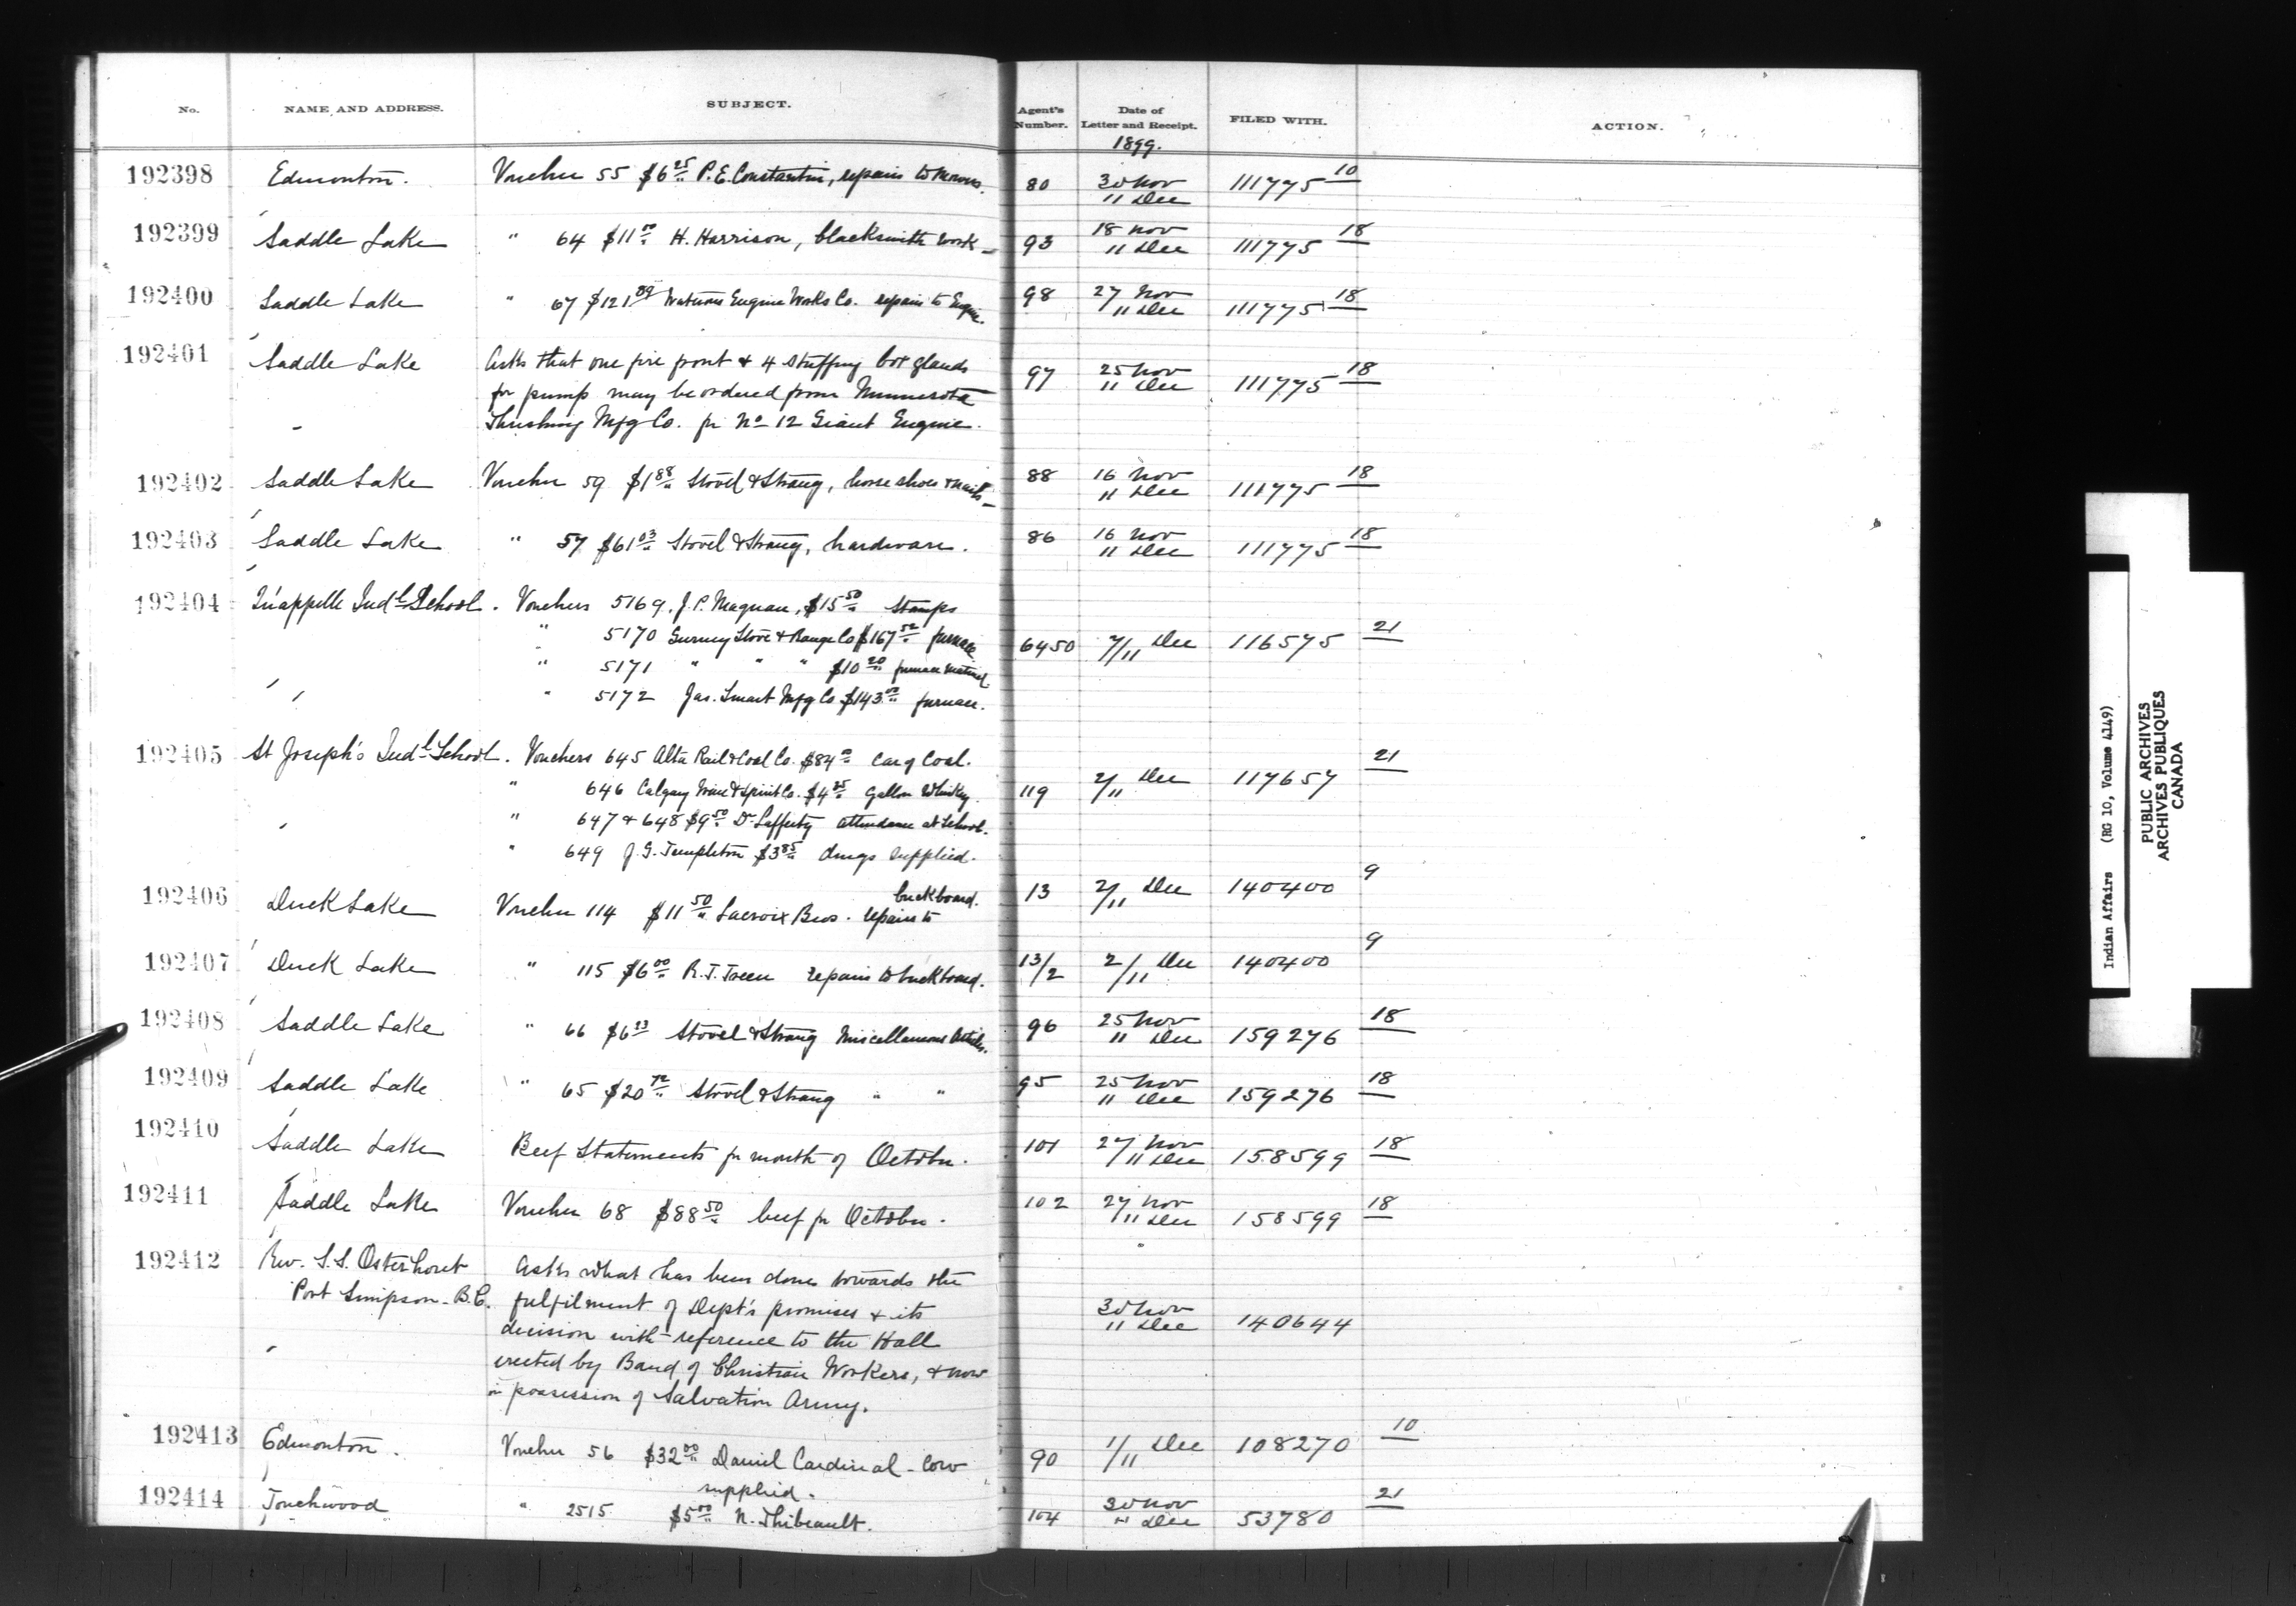 No. NAME AND ADDRESS. SUBJECT. Agent's Number. Date of Letter and Receipt. FILED WITH. ACTION.
1899.
192398 Edmonton. Voucher 55 $6 25 P. E. Constantin, repairs to Mowers. 80 30 Nov 11 Dec 111775 10
192399 Saddle Lake " 64 $11 00 H. Harrison, blacksmith work 93 18 Nov 11 Dec 111775 18
192400 Saddle Lake " 67 $121 89 Waterous Engine Works Co. repairs to Engine. 98 27 Nov 11 Dec 111775 18
192401 Saddle Lake Asks that one fire front & 4 stuffing box glands 97 25 Nov 11 Dec 111775 18
for pump may be ordered from Minnesota
Thrishing Mfg Co. fr No 12 Giant Engine.
192402 Saddle Lake Voucher 59 $1 88 Stovel & Strang, horse shoes & nails 88 16 Nov 11 Dec 111775 18
192403 Saddle Lake " 57 $61 03 Stovel & Strang, hardware. 86 16 Nov 11 Dec 111775 18
192404 Qu'appelle Indl School. Vouchers 5169, J. P. Magnan, $15 50 Stamps
" 5170 Gurney Stove & Range Co $167 52 furnace 6450 7/11 Dec 116575 21
" 5171 " " " $10 20 furnace material.
" 5172 Jas. Smart Mfg Co $143 00 furnace.
192405 St Joseph's Indl School. Vouchers 645 Alta Rail & Coal Co. $84 00 Car of Coal.
" 646 Calgary Wine & Spirit Co. $4 25 Gallon Whisky. 119 2/11 Dec 117657 21
" 647 & 648 $9 50 Dr Lafferty attendance at School.
" 649 J. G. Templeton $3 85 drugs supplied.
192406 Duck Lake Voucher 114 $11 50 Lacroix Bros. repairs to buckboard. 13 2/11 Dec 140400 9
192407 Duck Lake " 115 $6 00 R. J. Treen repairs to buckboard. 13/2 2/11 Dec 140400 9
192408 Saddle Lake " 66 $6 Stovel & Strang Miscellaneous Articles. 96 25 Nov 11 Dec 159276 18
192409 Saddle Lake " 65 $20 Stovel & Strang " " 95 25 Nov 11 Dec 159276 18
192410 Saddle Lake Beef Statements fr month of October. 101 27 Nov 11 Dec 158599 18
192411 Saddle Lake Voucher 68 $88 50 beef fr October. 102 27 Nov 11 Dec 158599 18
192412 Rev. S. S. Osterhout Asks what has been done towards the
Port Simpson - B.C. fulfilment of Dept's promises & its 30 Nov 11 Dec 140644
decision with reference to the Hall
erected by Band of Christian Workers, & now
in possession of Salvation Army.
192413 Edmonton. Voucher 56 $32 00 Daniel Cardinal - Cow 90 1/11 Dec 108270 10
supplied.
192414 Touchwood " 2515 $5 00 N. Thibeault. 104 30 Nov 11 Dec 53780 21
Indian Affairs (RG 10, Volume 4149)
PUBLIC ARCHIVES
ARCHIVES PUBLIQUES
CANADA